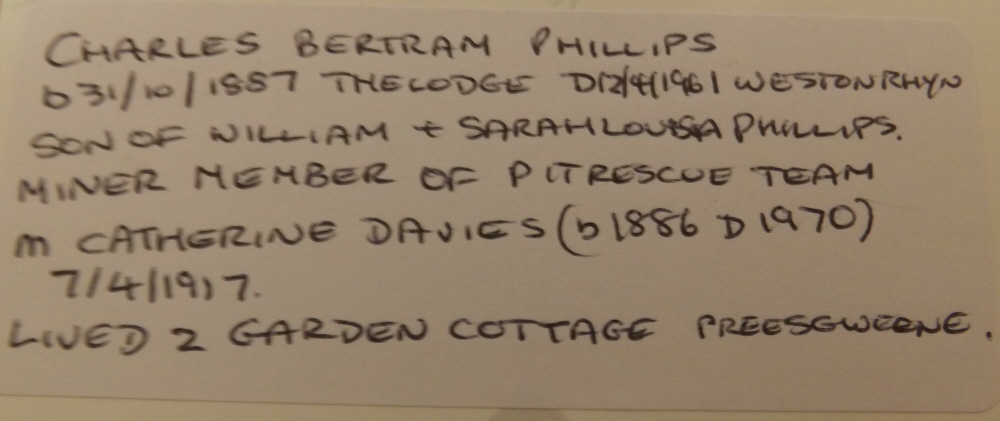 CHARLES BERTRAM PHILLIPS
b 31/10/1887 THE LODGE D 12/4/1961 WESTON RHYN
SON OF WILLIAM + SARAH LOUISA PHILLIPS.
MINER MEMBER OF PIT RESCUE TEAM
m CATHERINE DAVIES (b 1886 D 1970)
7/4/1917.
LIVED 2 GARDEN COTTAGE PREESGWEENE.